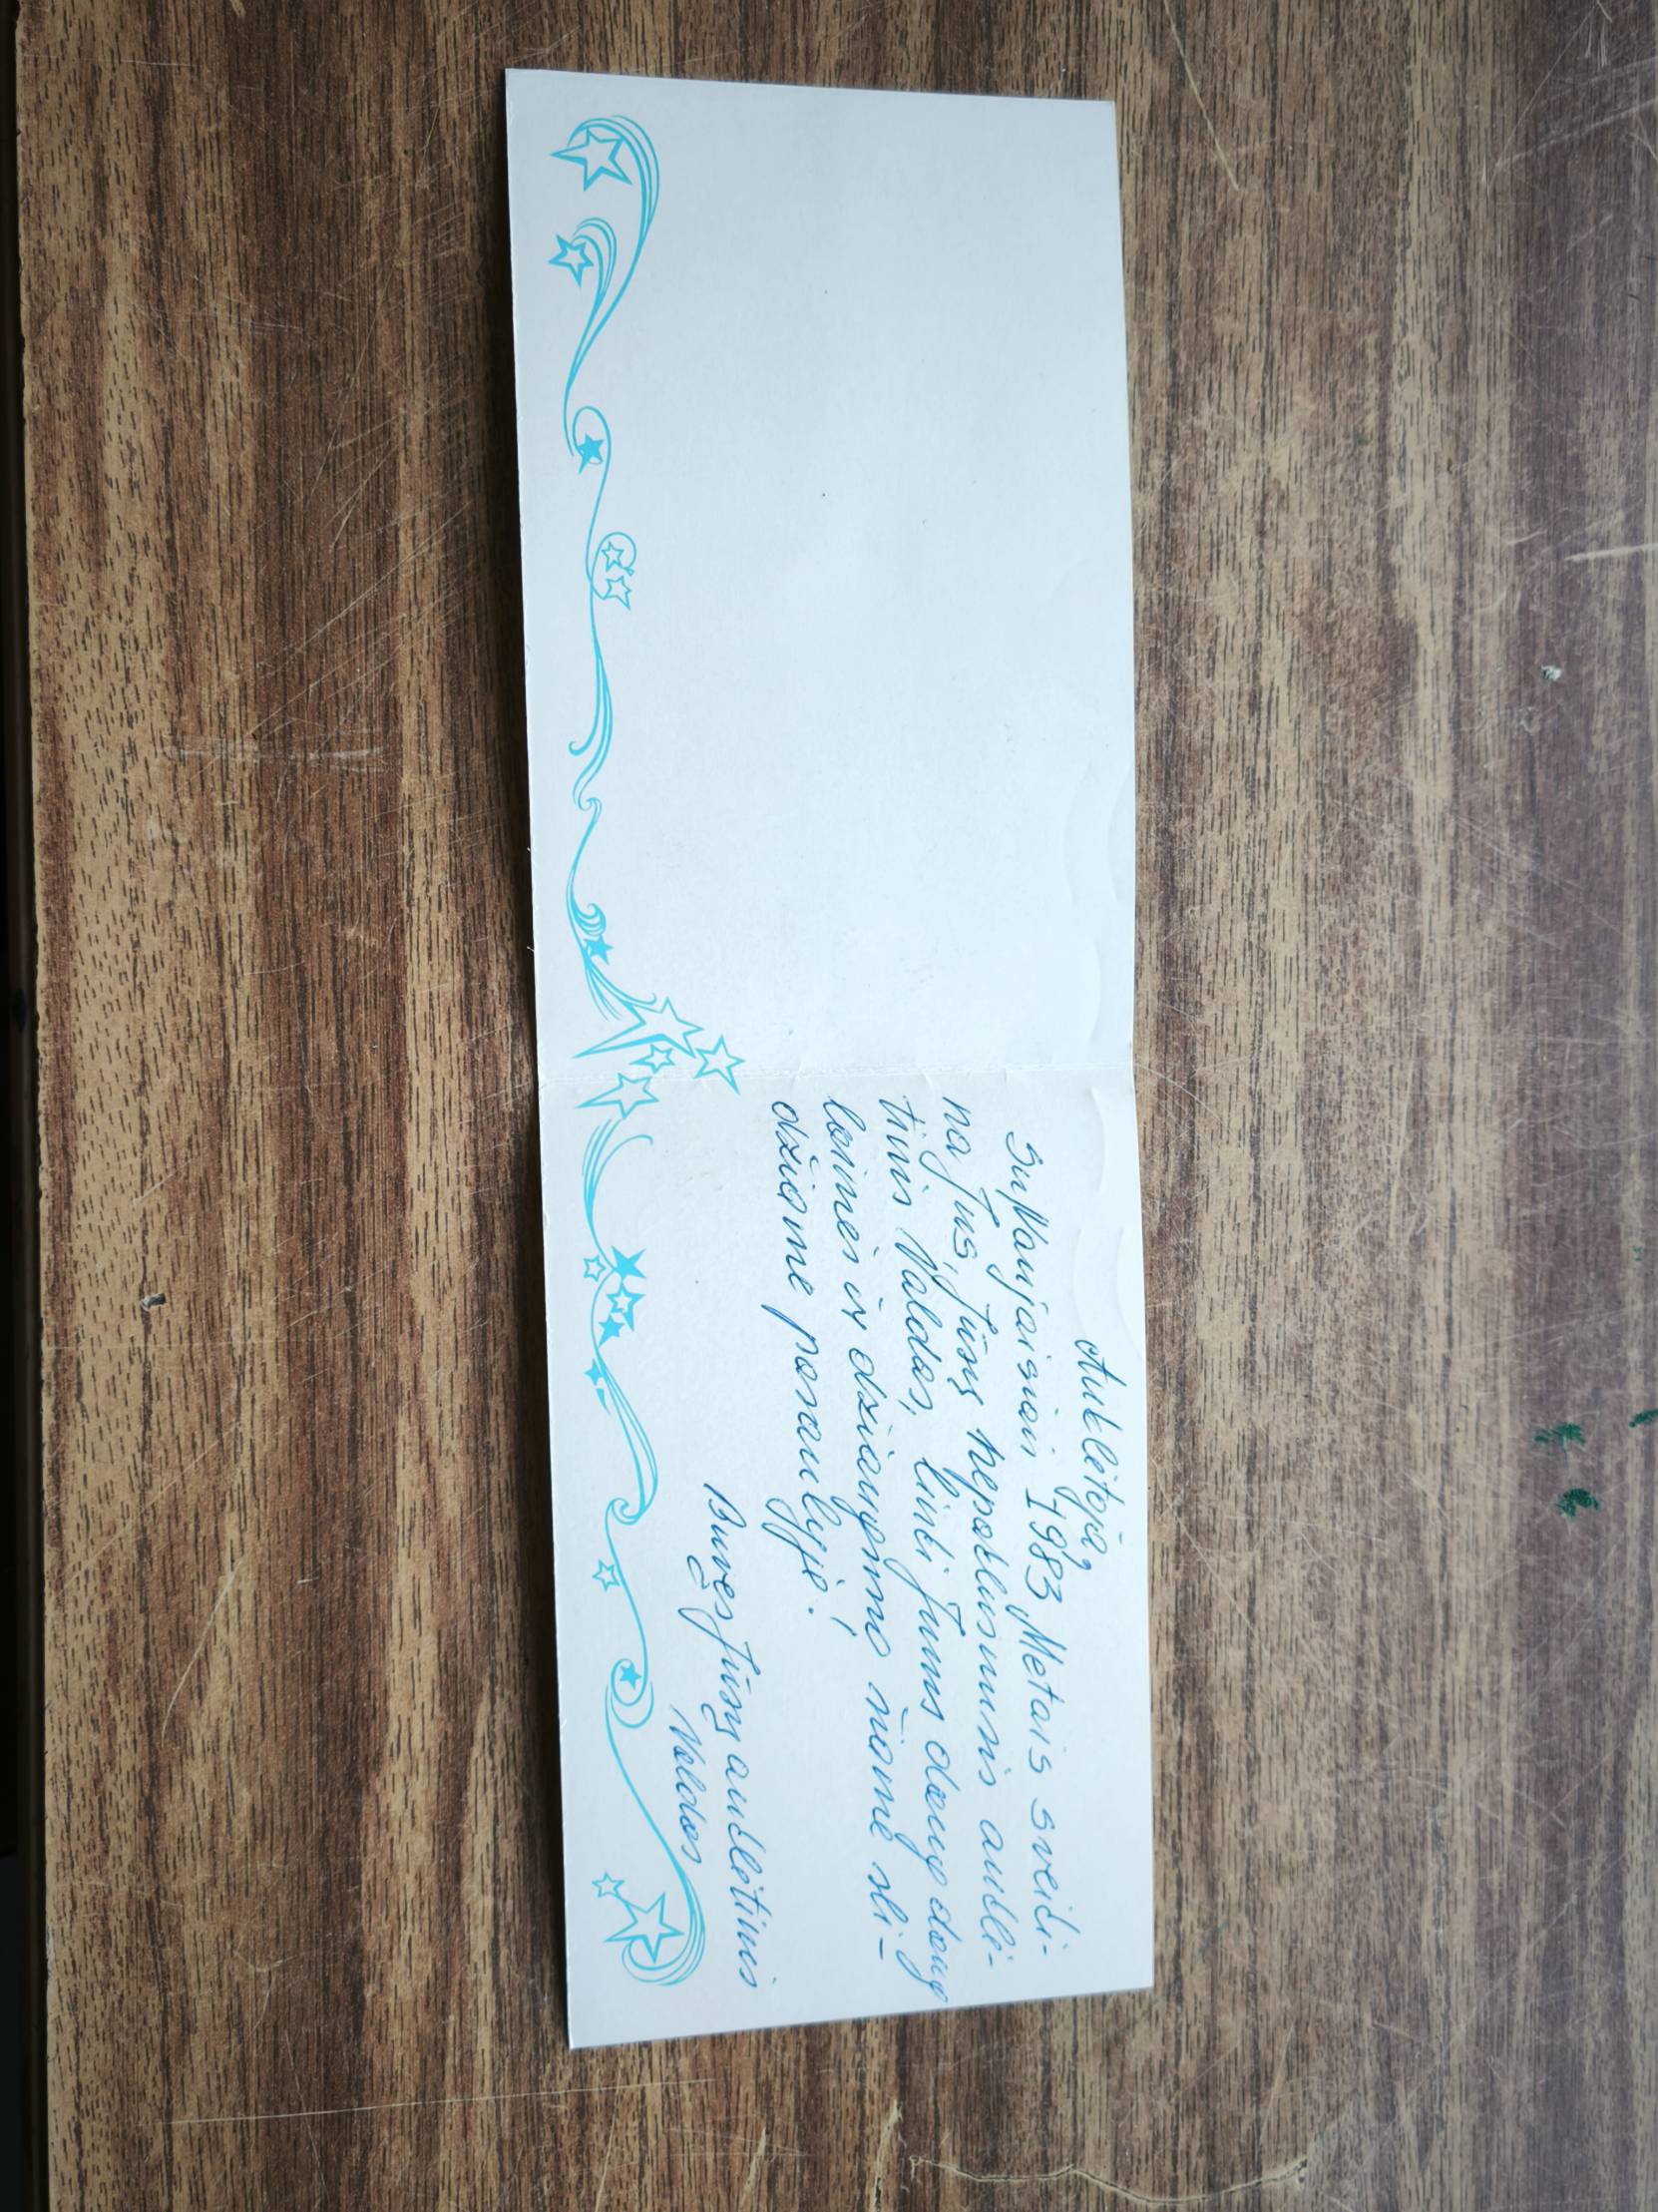 Auklėtoja,
Su Naujaisiais 1983 Metais sveiki-
na Jus, Jūsų nepaklusnusis auklė-
tinis Valdas, linki Jums daug daug
laimės ir džiaugsmo šiame sku-
džiame pasaulyje!
Buvęs Jūsų auklėtinis
Valdas